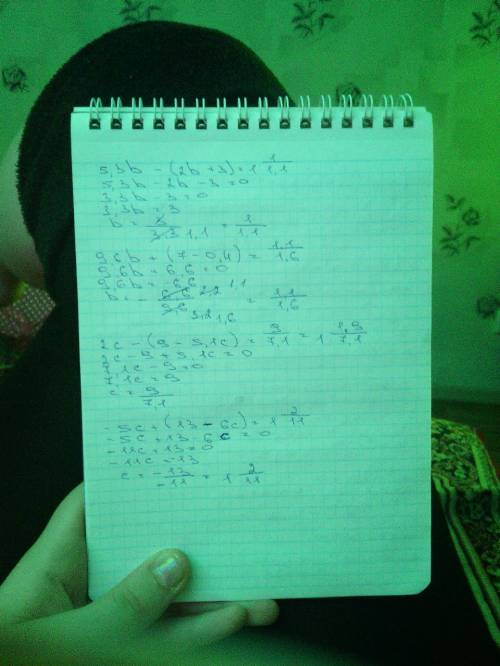 5,3b - (2b + 3) = 1 1/1,1
5,3b - 2b - 3 = 0
3,3b - 3 = 0
3,3b = 3
b = 3/3,3 1,1 = 1/1,1
9,6b + (7 - 0,4) = 1,1/1,6
9,6b + 6,6 = 0
9,6b = - 6,6
b = - 6,6 2,2 1,1/9,6 3,2 1,6 = 1,1/1,6
2c - (9 - 5,1c) = 9/7,1 = 1 1,9/7,1
2c - 9 + 5,1c = 0
7,1c - 9 = 0
7,1c = 9
c = 9/7,1
-5c + (13 - 6c) = 1 2/11
-5c + 13 - 6c = 0
-11c + 13 = 0
-11c = -13
c = -13/-11 = 1 2/11